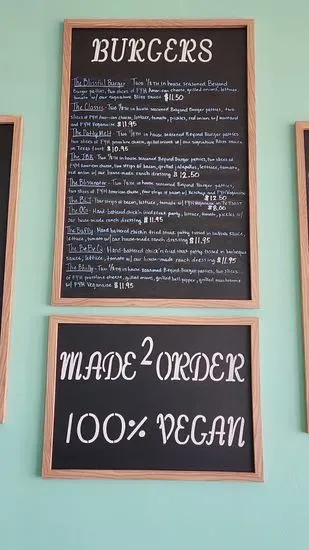 BURGERS
The Blissful Burger - Two ¼lb in house seasoned Beyond
Burger patties, two slices of FYH American cheese, grilled onions, lettuce,
tomato w/ our signature Bliss Sauce $11.50
The Classic - Two ¼lb in house seasoned Beyond Burger patties, two
slices of FYH American cheese, lettuce, tomato, pickles, red onion w/ mustard
and FYH Veganaise $11.95
The Patty Melt - Two ¼lb in house seasoned Beyond Burger patties
two slices of FYH provolone cheese, grilled onions w/ our signature Bliss sauce
on Texas toast $10.95
The JBB - Two ¼lb in house seasoned Beyond Burger patties, two slices
of FYH American cheese, two strips of bacon, grilled jalapeños, lettuce, tomato,
red onion w/ our house-made ranch dressing $12.50
The Blissinator - Two ¼lb in house seasoned Beyond Burger patties,
two slices of FYH American cheese, four strips of bacon w/ ketchup and FYH Veganaise
$12.50
The BLT - Four strips of bacon, lettuce, tomato w/ FYH Veganaise on Texas toast
$8.00
The OG - Hand-battered chick'n fried steak patty, lettuce, tomato, pickles w/
our house-made ranch dressing $11.95
The Buffy - Hand battered chick'n fried steak patty tossed in buffalo sauce,
lettuce, tomato w/ our house-made ranch dressing $11.95
The BeeBeeQ - Hand-battered chick'n fried steak patty tossed in barbeque
sauce, lettuce, tomato w/ our house-made ranch dressing $11.95
The Philly - Two ¼lb in house seasoned Beyond Burger patties, two slices
of FYH provolone cheese, grilled onions, grilled bell pepper, grilled mushrooms
w/ FYH Veganaise $11.95
MADE 2 ORDER
100% VEGAN